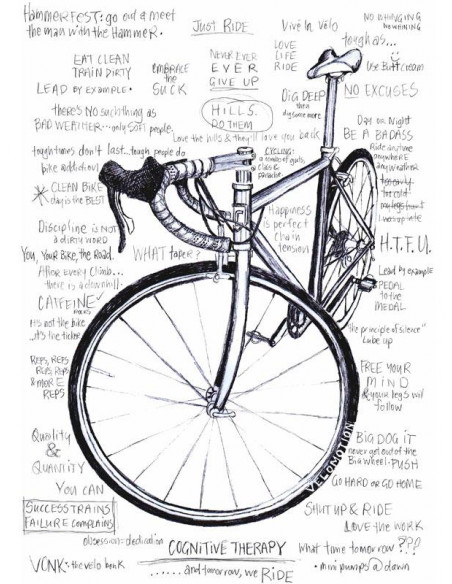 HAMMERFEST: go out & meet
the man with the HAMMER.
JUST RIDE
Vive le Vélo
NO WHINGING
NO WHINING
toughas...
EAT CLEAN
TRAIN DIRTY
EMBRACE
the
SUCK
NEVER EVER
EVER
GIVE UP
LOVE
LIFE
RIDE
Use Butt cream
LEAD BY example.
DIG DEEP
then
dig some more
NO EXCUSES
there's NO such thing as
BAD WEATHER...only soft people.
HILLS.
DO THEM
Love the hills & they'll love you back
Day or Night
BE A BADASS
Ride anytime
anywhere
any weather
tough times don't last...tough people do
bike addiction
CYCLING:
a tender of guts,
class &
panache.
CLEAN BIKE
day is the BEST
too early
too cold
my legs hurt
I was up late
Discipline is NOT
a DIRTY WORD
Happiness
is perfect
Chain
tension
H.T.F.U.
You, Your Bike, the Road.
WHAT taper?
After EVERY Climb...
there is a downhill
Lead by example
PEDAL
to the
MEDAL
CAFFEINE
it's not the bike
..it's the ticker
the principle of silence"
Lube up
REPS, REPS
REPS, REPS
& MORE
REPS
FREE YOUR
MIND
& your legs will
follow
Quality
&
QUANTITY
BIG DOG IT
never get out of the
Big wheel - PUSH
VELOMOTION
YOU CAN
GO HARD or GO HOME
SUCCESS TRAINS
FAILURE complains
SHUT UP & RIDE
LOVE THE WORK
obsession = dedication
COGNITIVE THERAPY
what time tomorrow ???
VONK: the velo bonk
......and tomorrow, we RIDE
• mini pumps @ dawn